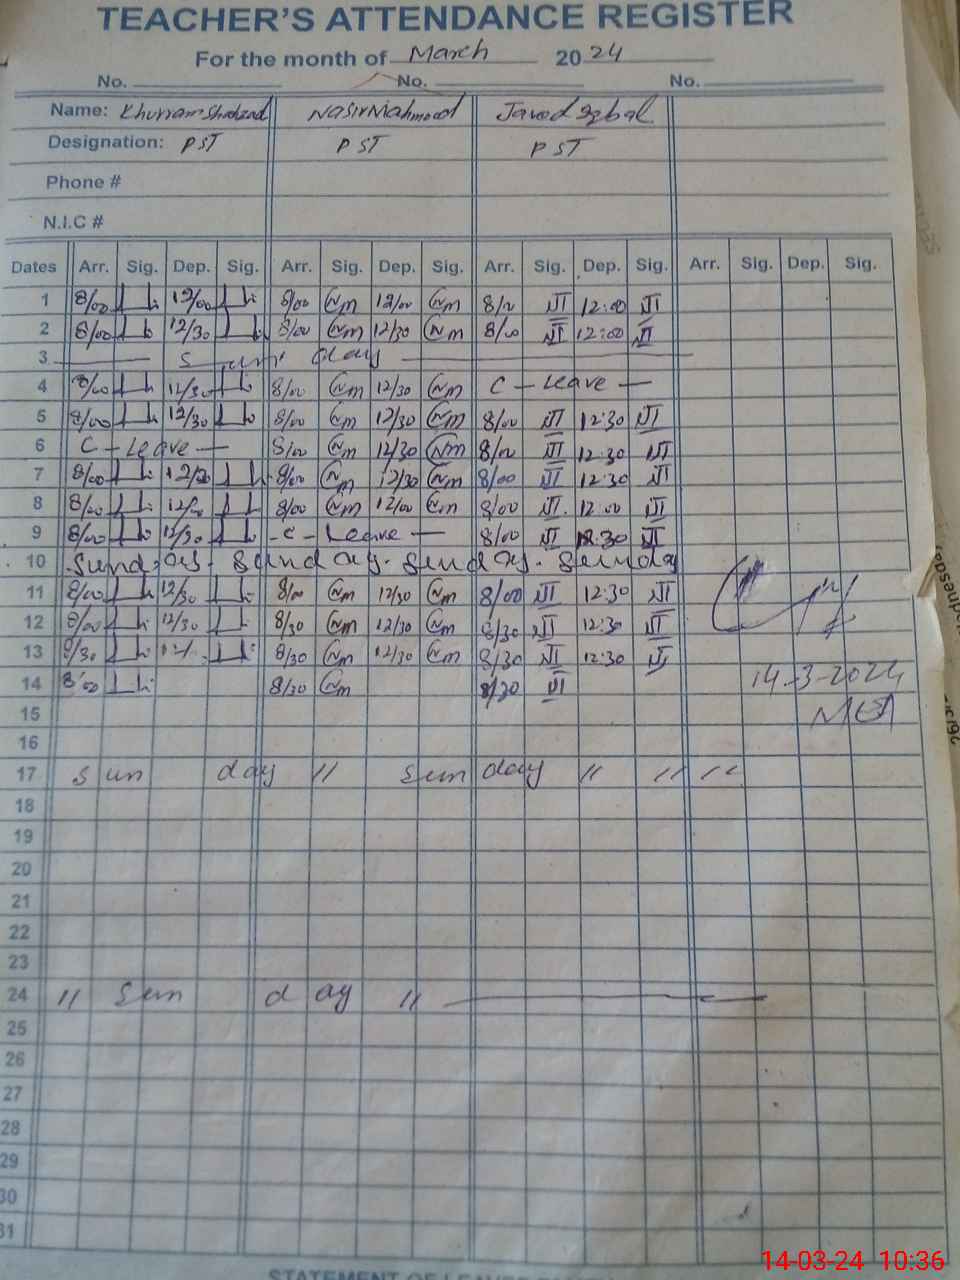 TEACHER'S ATTENDANCE REGISTER
For the month of March 2024
No. No. No.
Name: Khurram Shahzad Nasir Mahmood Javed Iqbal
Designation: PST PST PST
Phone #
N.I.C #
Dates Arr. Sig. Dep. Sig. Arr. Sig. Dep. Sig. Arr. Sig. Dep. Sig. Arr. Sig. Dep. Sig.
1 8/00 12/00 8/00 Nm 12/00 Nm 8/00 12:00
2 8/00 12/30 8/00 Nm 12/30 Nm 8/00 12:00
3 Sun day
4 8/00 12/30 8/00 Nm 12/30 Nm C - Leave -
5 8/00 12/30 8/00 Nm 12/30 Nm 8/00 12:30
6 C - Leave - 8/00 Nm 12/30 Nm 8/00 12:30
7 8/00 12/30 8/00 Nm 12/30 Nm 8/00 12:30
8 8/00 8/00 Nm 12/00 Nm 8/00 12:00
9 8/00 12/30 - C - Leave - 8/00 12:30
10 Sunday. Sunday. Sunday. Sunday
11 8/00 12/30 8/00 Nm 12/30 Nm 8/00 12:30
12 8/00 12/30 8/30 Nm 12/30 Nm 8/30 12:30
13 8/30 8/30 Nm 12/30 Nm 8/30 12:30
14 8:00 8/30 Nm 8/30 14-3-2024
15
16
17 Sun day " Sun day " " "
18
19
20
21
22
23
24 " Sun day "
25
26
27
28
29
30
31
14-03-24 10:36